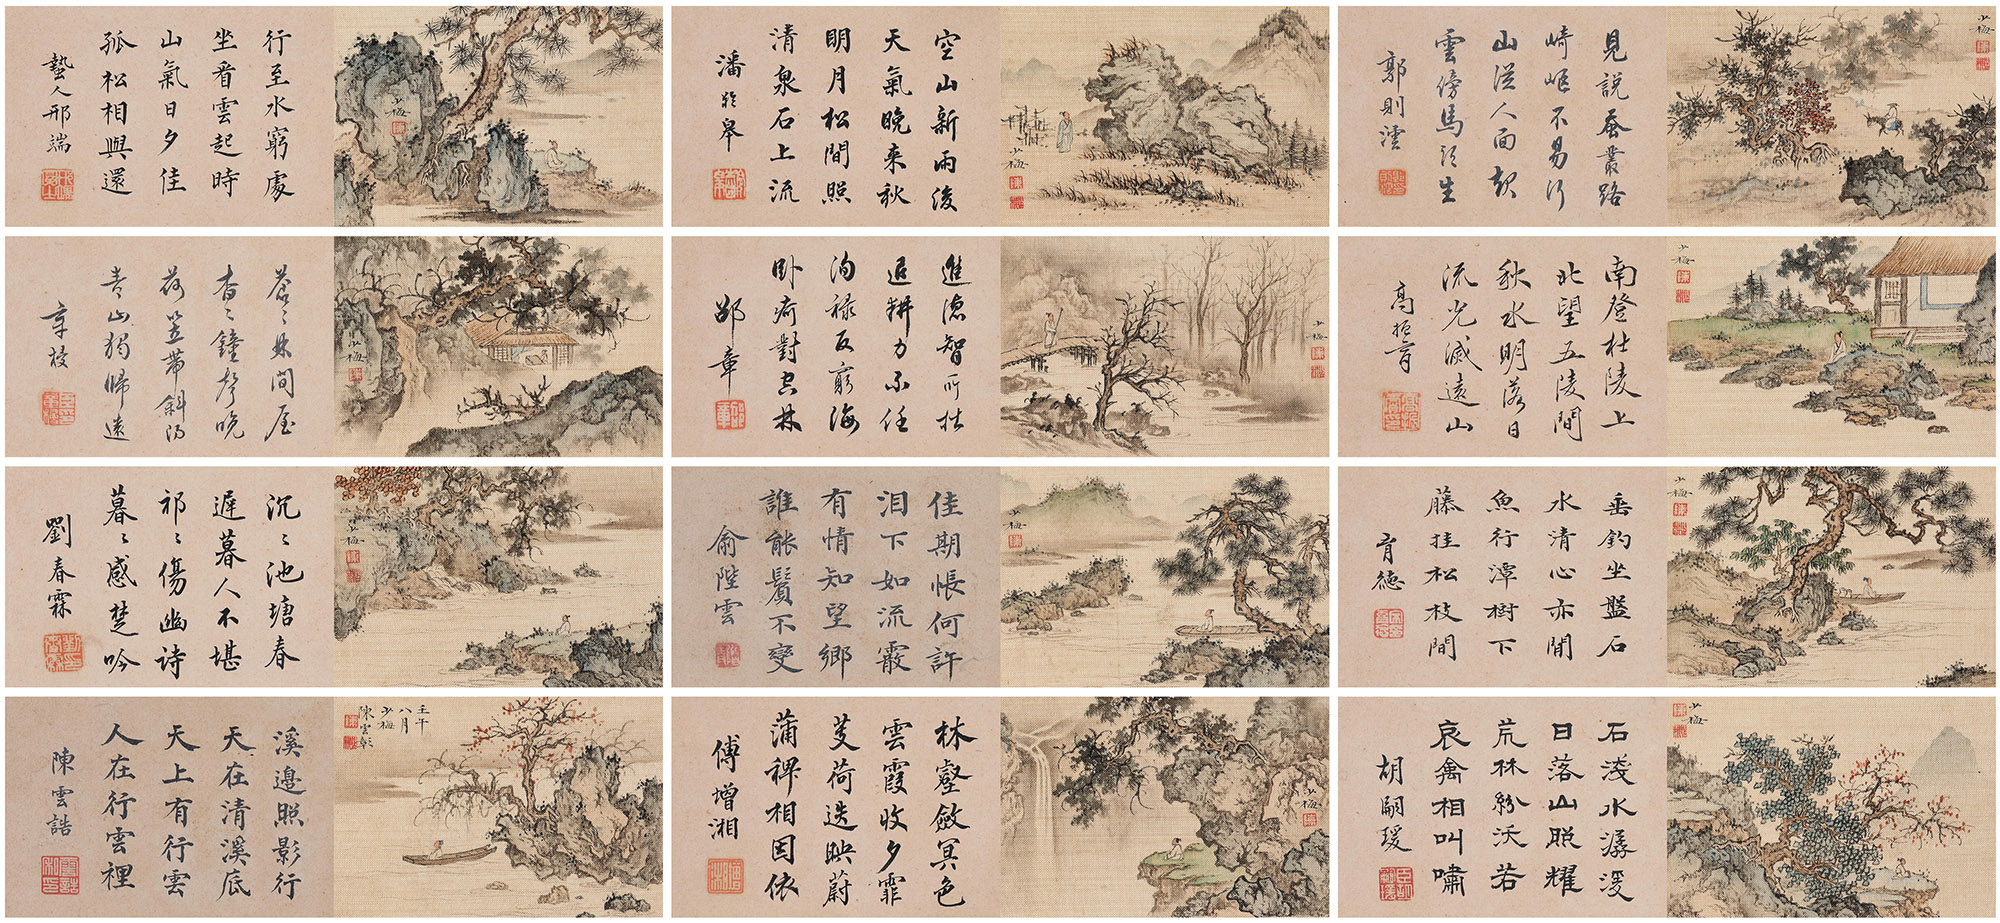 行至水窮處
坐看雲起時
山氣日夕佳
孤松相與還
蟄人邢端
少梅
空山新雨後
天氣晚來秋
明月松間照
清泉石上流
潘齡皋
少梅
見說蚕叢路
崎岖不易行
山從人面起
雲傍馬頭生
郭則澐
少梅
蒼〻林間屋
杳〻鐘聲晚
荷笠帶斜陽
青山獨歸遠
章梫
少梅
進德智所拙
退耕力不任
洵祿反窮海
卧痾對空林
邵章
少梅
南登杜陵上
北望五陵間
秋水明落日
流光滅遠山
高振霄
少梅
沉〻池塘春
遲暮人不堪
祁〻傷豳詩
暮〻感楚吟
劉春霖
少梅
佳期悵何許
泪下如流霰
有情知望鄉
誰能鬢不變
俞陛雲
少梅
垂釣坐盤石
水清心亦閒
魚行潭樹下
藤挂松枝間
育德
少梅
溪邊照影行
天在清溪底
天上有行雲
人在行雲裡
陳雲誥
壬午
八月
少梅
陳雲彰
林壑斂冥色
雲霞收夕霏
芰荷迭映蔚
蒲稗相因依
傅增湘
少梅
石淺水潺湲
日落山照耀
荒林紛沃若
哀禽相叫嘯
胡嗣瑗
少梅